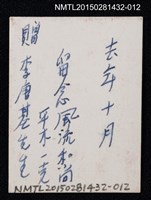 NMTL20150281432-012
去年十月
留念風流和尚
平木一克
贈 李唐基先生
NMTL20150281432-012